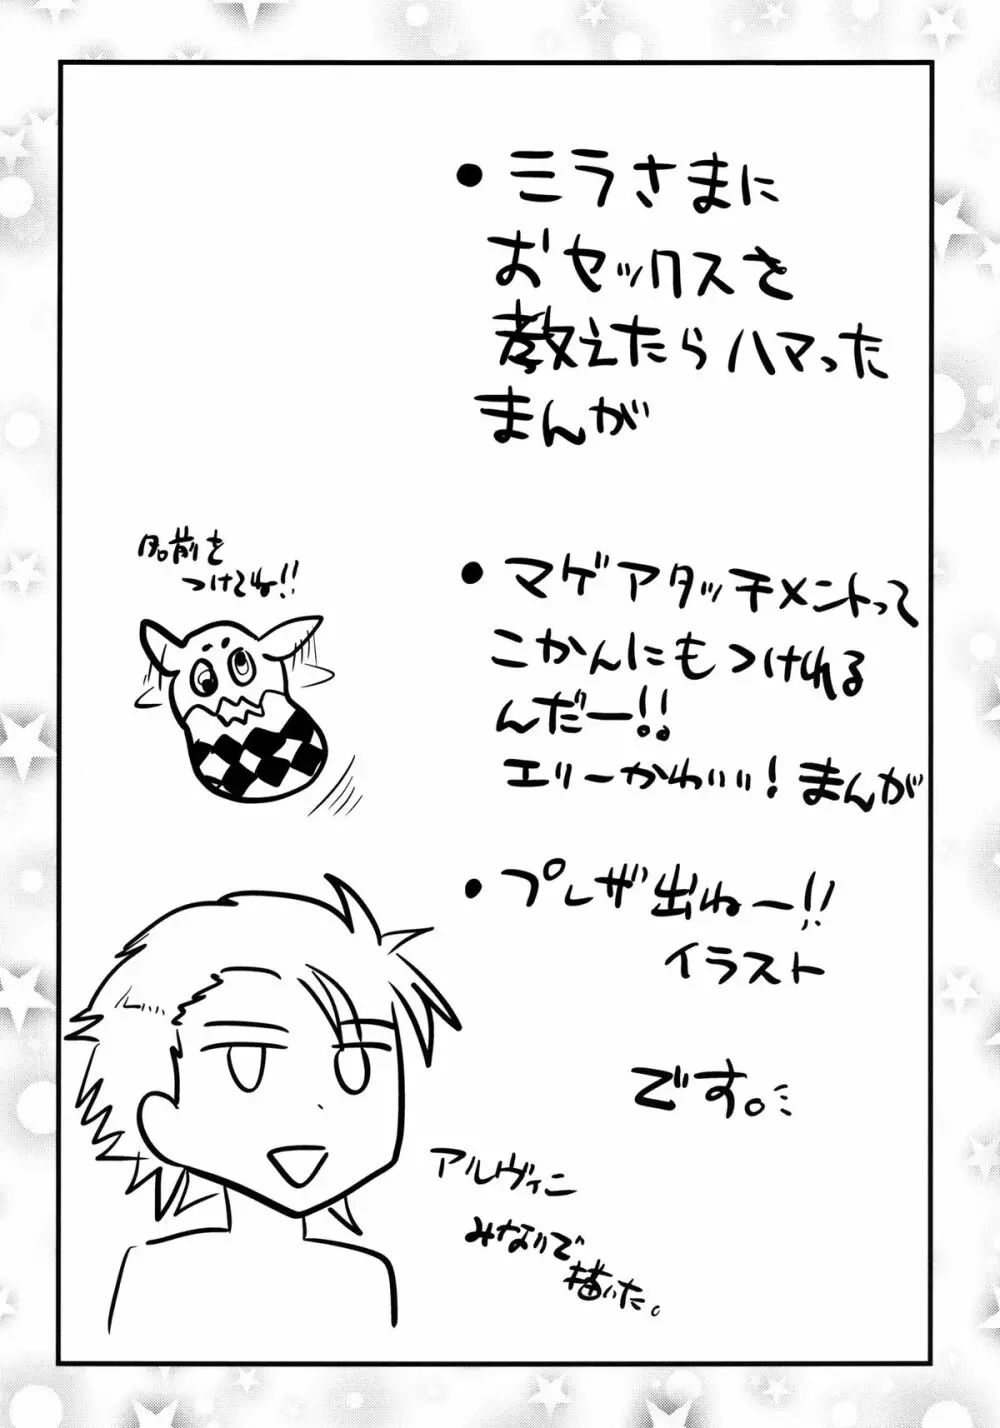 ・ミラさまに
おセックスを
教えたらハマった
まんが
名前を
つけてね!!
・マゲアタッチメントって
こかんにもつけれる
んだー!!
エリーかわいい!まんが
・プレザ出ねー!!
イラスト
です。
アルヴィン
みないで
描いた。